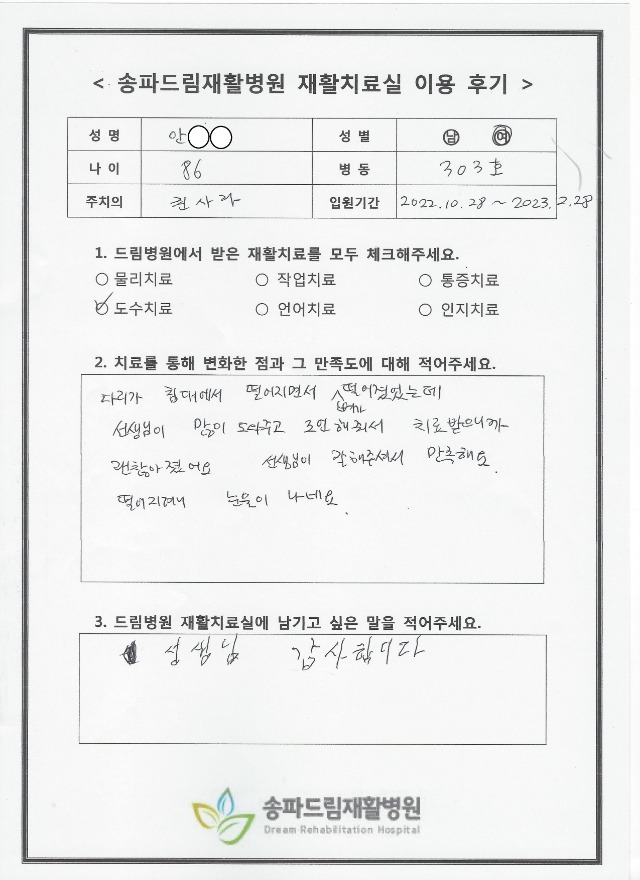 < 송파드림재활병원 재활치료실 이용 후기 >
성 명 안○○ 성 별 남 여
나 이 86 병 동 303호
주치의 권사라 입원기간 2022.10.28 ~ 2023.2.28
1. 드림병원에서 받은 재활치료를 모두 체크해주세요.
○ 물리치료 ○ 작업치료 ○ 통증치료
○ 도수치료 ○ 언어치료 ○ 인지치료
2. 치료를 통해 변화한 점과 그 만족도에 대해 적어주세요.
다리가 침대에서 떨어지면서 뼈가 떨어졌었는데
선생님이 많이 도와주고 조언해줘서 치료받으니까
괜찮아졌어요 선생님이 잘해주셔서 만족해요.
떨어지려니 눈물이 나네요.
3. 드림병원 재활치료실에 남기고 싶은 말을 적어주세요.
선생님 감사합니다
송파드림재활병원
Dream Rehabilitation Hospital